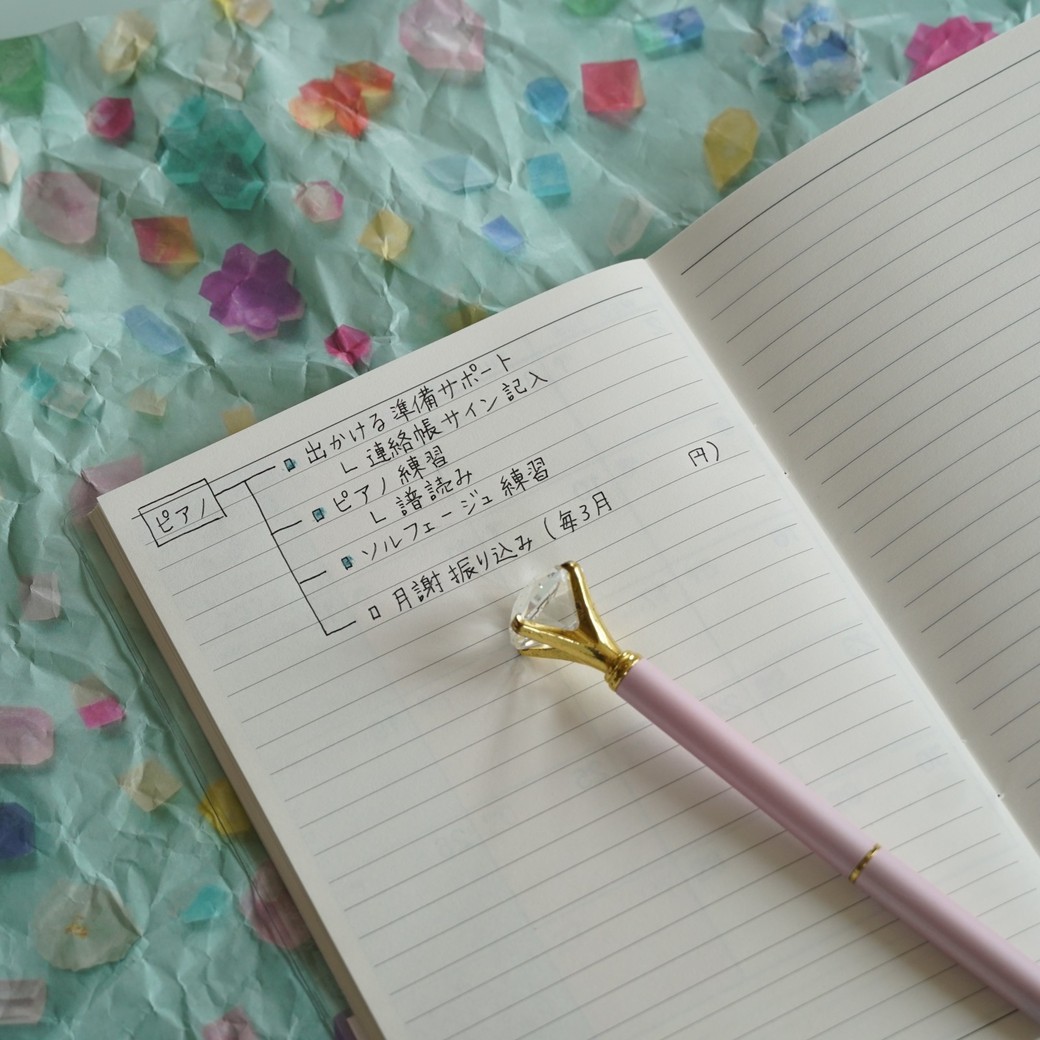 ピアノ
出かける準備サポート
L 連絡帳サイン記入
ピアノ練習
L 譜読み
ソルフェージュ練習
月謝振り込み（毎3月 円）